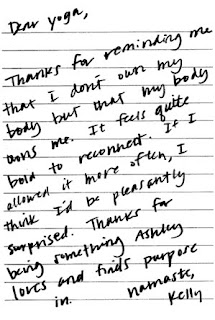 Dear yoga,
Thanks for reminding me
that I don't own my
body but that my body
owns me. It feels quite
bold to reconnect. If I
allowed it more often, I
think I'd be pleasantly
surprised. Thanks for
being something Ashley
loves and finds purpose
in. namaste,
Kelly